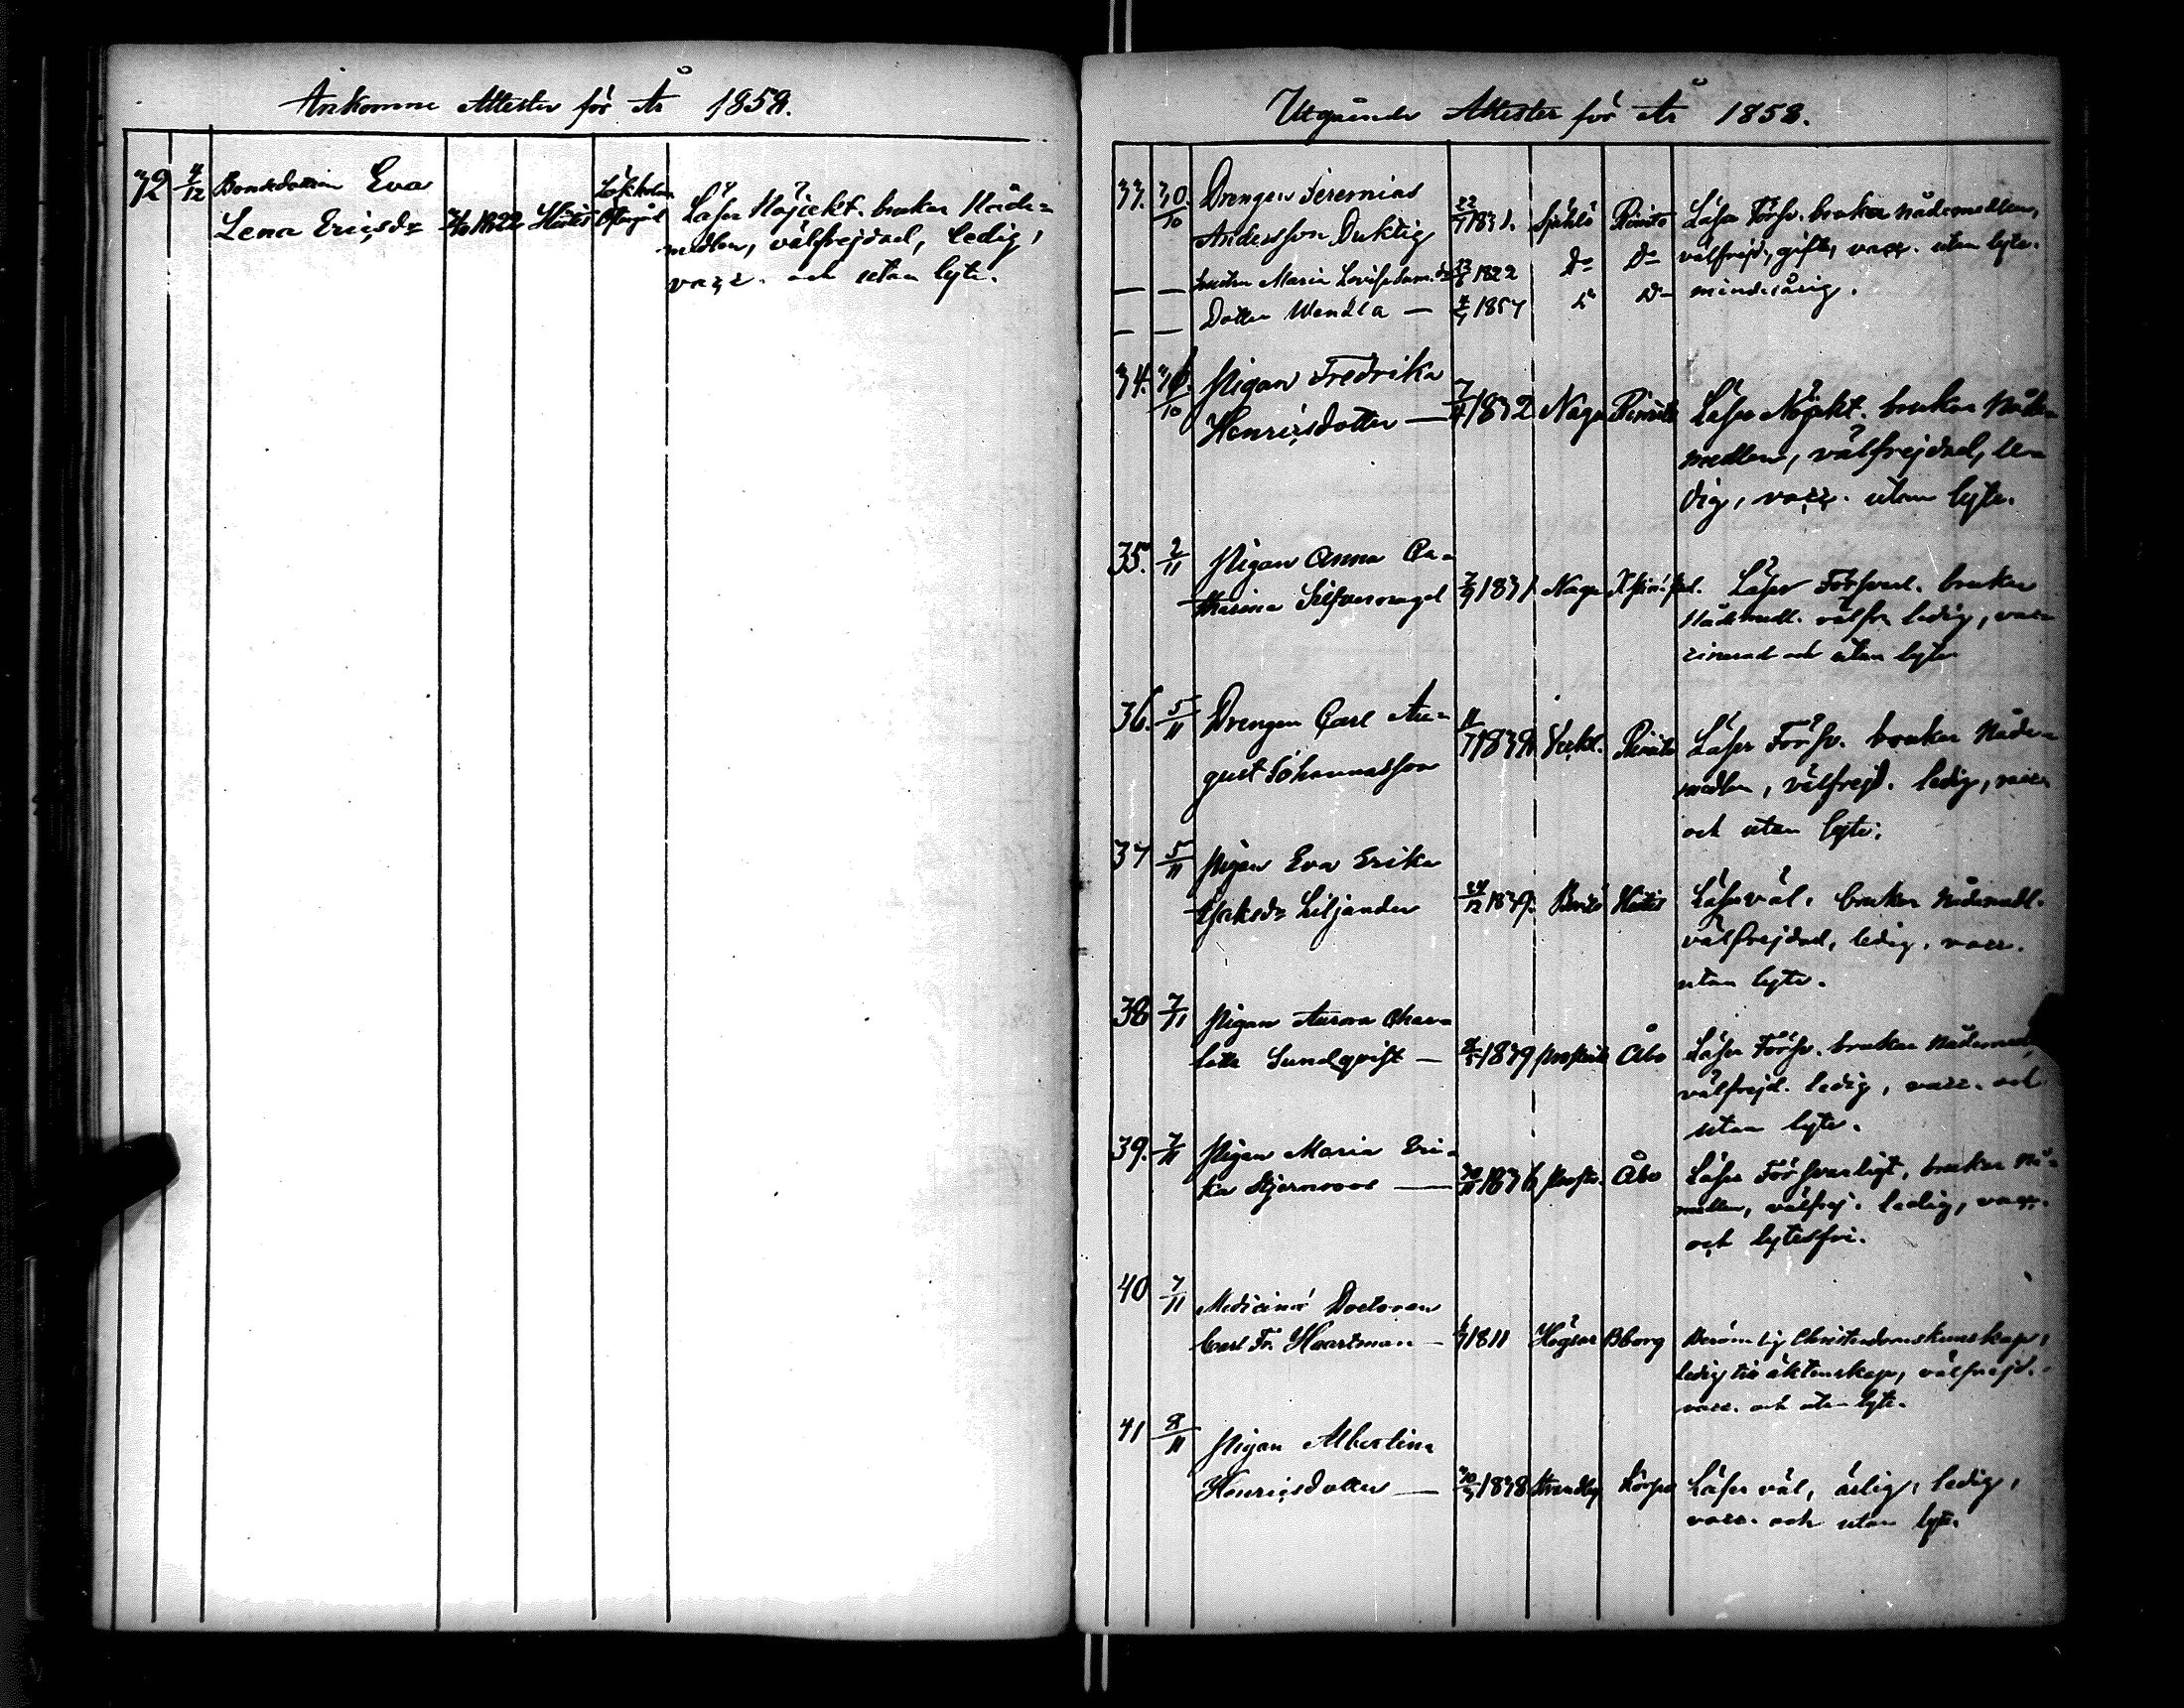 Ankomne Attester för År 1858.
32 4/12 Bondedottren Eva
Lena Ericsdr 1822 Hitis
Läser Nöjakt. brukar Nåde=
medlen, välfrejdad, ledig,
vacc. och utan lyte.
Utgående Attester för År 1858.
33. 30/10 Drengen Jeremias
Andersson Duktig 22/7 1831. Sjählö Rimito Läser Försv. brukar nådemedlen,
välfrejd, gift, vacc. utan lyte.
hustru Maria Lovisa Sam.dr 1822 Do Do
— — Dotter Wendla — 1857 Do Do minderårig.
34. 30/10 Pigan Fredrika
Henricsdotter — 7/4 1832 Nagu Rimito Läser Nöjakt. brukar Nåde=
medlen, välfrejdad, le=
dig, vacc. utan lyte.
35. 2/11 Pigan Anna Ca=
tharina Silfvernagel 7/9 1831 Nagu Läser Försvarl. brukar
Nådemedl. välfr. ledig, vac=
cinerad och utan lyte
36. 5/11 Drengen Carl Au=
gust Johannesson 11/7 1838 Rimito Läser Försv. brukar Nåde=
medlen, välfrejd. ledig, vacc.
och utan lyte.
37 5/11 Pigan Eva Erika
Isaksdr Liljander 24/12 1839. Hitis Läser väl. brukar Nådemedl.
välfrejdad, ledig, vacc.
utan lyte.
38 7/11 Pigan Aurora Char=
lotta Sundqvist — 1839 Åbo Läser Försv. brukar Nådemed
välfrejd. ledig, vacc. och
utan lyte.
39. 7/11 Pigan Maria Eri=
ka Stjernroos — 1836 Åbo Läser Försvarligt, brukar Nå=
medlen, välfrej. ledig, vacc.
och lytesfri.
40 7/11 Medicine Doctoren
Carl Fr. Haartman — 1811 Högsar Bborg Berömlig Christendomskunskap,
ledig till äktenskap, välfrejd.
vacc. och utan lyte.
41 8/11 Pigan Albertina
Henricsdotter — 1838 Strandby Korpo Läser väl, ärlig, ledig,
vacc. och utan lyte.